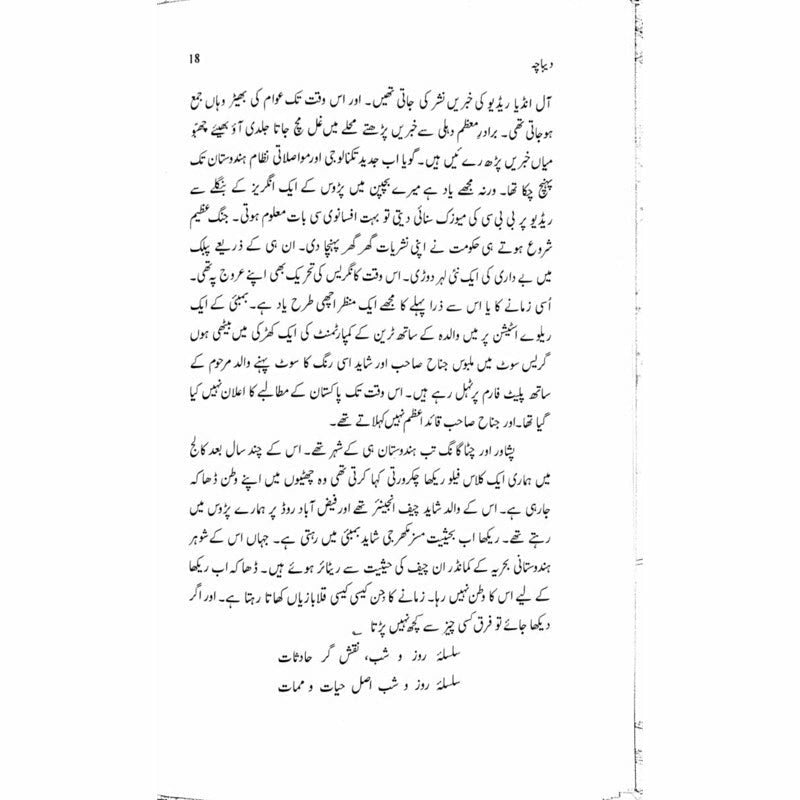 دیباچہ 18
آل انڈیا ریڈیو کی خبریں نشر کی جاتی تھیں۔ اور اس وقت تک عوام کی بھیڑ وہاں جمع
ہوجاتی تھی۔ برادرِ معظم دہلی سے خبریں پڑھتے محلے میں غل مچ جاتا جلدی آؤ بھیئے چھبّو
میاں خبریں پڑھ رے ئیں ہیں۔ گویا اب جدید تکنالوجی اور مواصلاتی نظام ہندوستان تک
پہنچ چکا تھا۔ ورنہ مجھے یاد ہے میرے بچپن میں پڑوس کے ایک انگریز کے بنگلے سے
ریڈیو پر بی بی سی کی میوزک سنائی دیتی تو بہت افسانوی سی بات معلوم ہوتی۔ جنگ عظیم
شروع ہوتے ہی حکومت نے اپنی نشریات گھر گھر پہنچا دی۔ ان ہی کے ذریعے پبلک
میں بے داری کی ایک نئی لہر دوڑی۔ اس وقت کانگریس کی تحریک بھی اپنے عروج پہ تھی۔
اُسی زمانے کا یا اس سے ذرا پہلے کا مجھے ایک منظر اچھی طرح یاد ہے۔ بمبئی کے ایک
ریلوے اسٹیشن پر میں والدہ کے ساتھ ٹرین کے کمپارٹمنٹ کی ایک کھڑکی میں بیٹھی ہوں
گریس سوٹ میں ملبوس جناح صاحب اور شاید اسی رنگ کا سوٹ پہنے والد مرحوم کے
ساتھ پلیٹ فارم پر ٹہل رہے ہیں۔ اس وقت تک پاکستان کے مطالبے کا اعلان نہیں کیا
گیا تھا۔ اور جناح صاحب قائد اعظم نہیں کہلاتے تھے۔
پشاور اور چٹاگانگ تب ہندوستان ہی کے شہر تھے۔ اس کے چند سال بعد کالج
میں ہماری ایک کلاس فیلو ریکھا چکرورتی کہا کرتی تھی وہ چھٹیوں میں اپنے وطن ڈھا کہ
جارہی ہے۔ اس کے والد شاید چیف انجینئر تھے اور فیض آباد روڈ پر ہمارے پڑوس میں
رہتے تھے۔ ریکھا اب بحیثیت مسز مکھرجی شاید بمبئی میں رہتی ہے۔ جہاں اس کے شوہر
ہندوستانی بحریہ کے کمانڈر ان چیف کی حیثیت سے ریٹائر ہوئے ہیں۔ ڈھا کہ اب ریکھا
کے لیے اس کا وطن نہیں رہا۔ زمانے کا جِن کیسی کیسی قلابازیاں کھاتا رہتا ہے۔ اور اگر
دیکھا جائے تو فرق کسی چیز سے کچھ نہیں پڑتا ؎
سلسلۂ روز و شب، نقش گر حادثات
سلسلۂ روز و شب اصل حیات و ممات